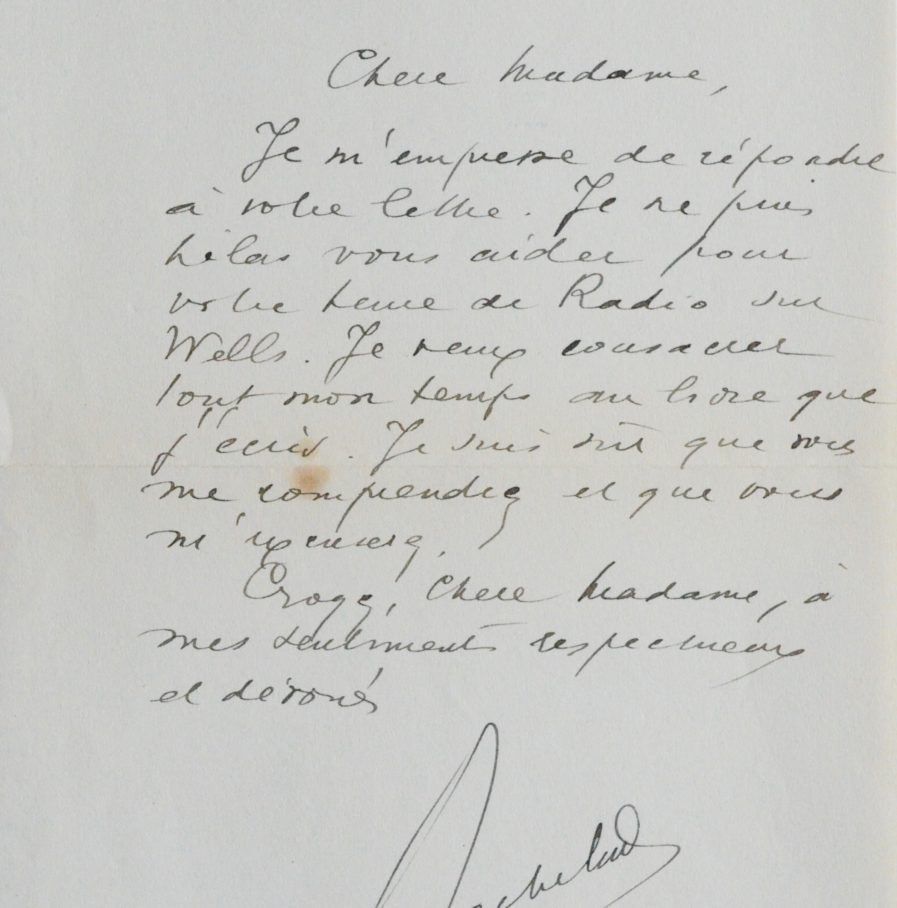 Chere Madame,
Je m'empresse de répondre
à votre lettre. Je ne puis
hélas vous aider pour
votre heure de Radio sur
Wells. Je veux consacrer
tout mon temps au livre que
j'écris. Je suis sûr que vous
me comprendrez et que vous
m'excuserez.
Croyez, Chere Madame, à
mes sentiments respectueux
et dévoués